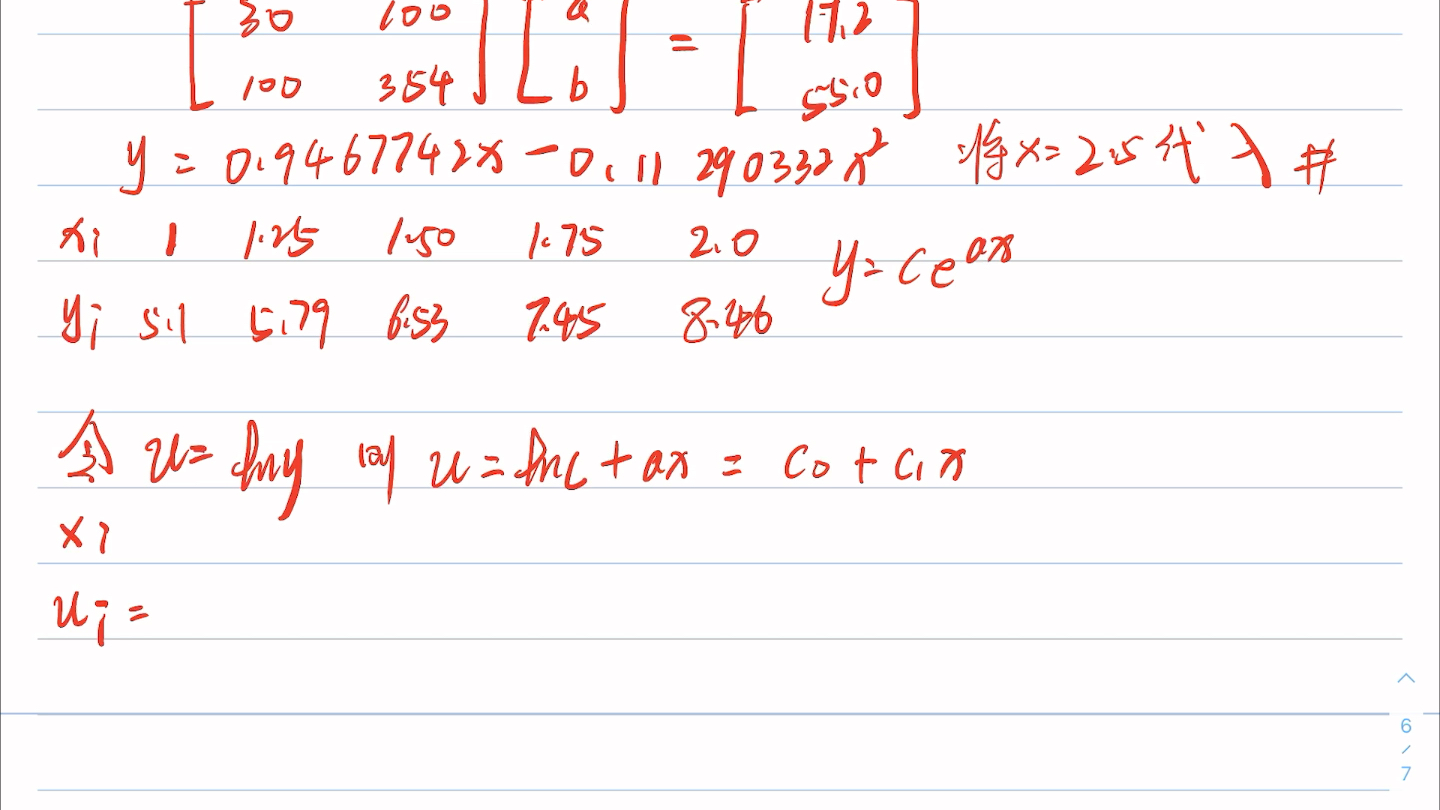 [30 100] [a] = [17.2]
[100 354] [b] [55.0]
y = 0.9467742x - 0.11290332x² 将x=2.5代入 #
xi 1 1.25 1.50 1.75 2.0 y=ce^ax
yi 5.1 5.79 6.53 7.45 8.46
令 u=lny 则 u=lnc+ax = c0+c1x
xi
ui =
6
/
7